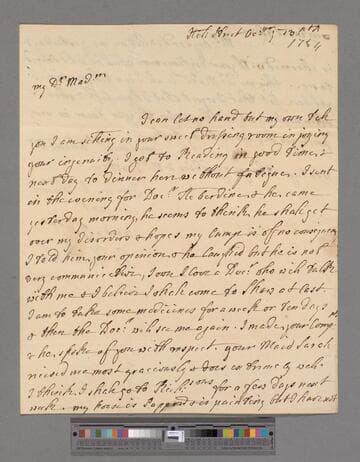 Hill Street Oct. ye 13th
1754
my Dr. Madm.
I can let no hand but my own tell
you I am sitting in your sweet dressing room injoying
your ingenuity. I got to Reading in good time, &
next day to dinner here without fatigue. I sent
in the evening for Docr. Heberdine & he came
yesterday morning, he seems to think he shall get
over my disorders & hopes my lump is of no consequence
I told him your opinion & he laughed but he is not
very communicative, I own I love a Docr. who will talk
with me & I believe I shall come to Shaw at last.
I am to take some medicines for a week or ten days
& then the Docr. will see me again. I made your Compts.
& he spoke of you with respect. your Maid Sarah
recieved me most graciously & does extrimely well.
I think I shall go to for a few days next
week. my house is & is painting but I have not